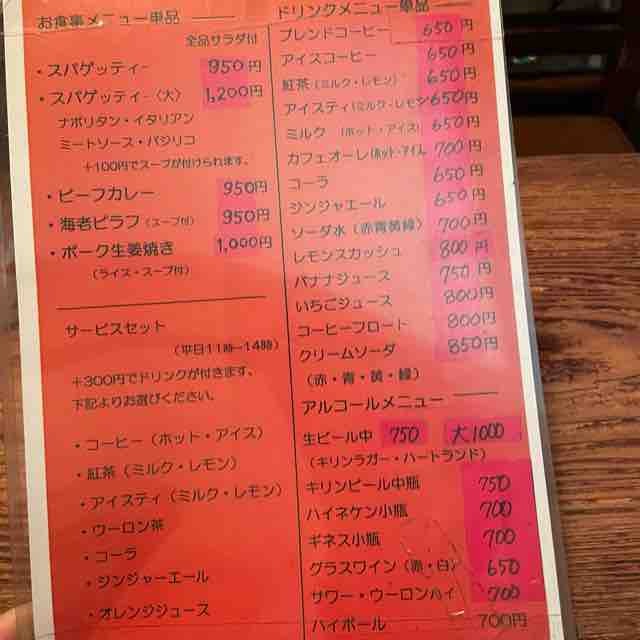 お食事メニュー単品
全品サラダ付
・スパゲッティー 950円
・スパゲッティー〈大〉 1,200円
ナポリタン・イタリアン
ミートソース・バジリコ
+100円でスープが付けられます。
・ビーフカレー 950円
・海老ピラフ(スープ付) 950円
・ポーク生姜焼き 1,000円
(ライス・スープ付)
サービスセット
(平日11時―14時)
+300円でドリンクが付きます。
下記よりお選びください。
・コーヒー(ホット・アイス)
・紅茶(ミルク・レモン)
・アイスティ(ミルク・レモン)
・ウーロン茶
・コーラ
・ジンジャーエール
・オレンジジュース
ドリンクメニュー単品
ブレンドコーヒー 650円
アイスコーヒー 650円
紅茶(ミルク・レモン) 650円
アイスティ(ミルク・レモン 650円
ミルク (ホット・アイス) 650円
カフェオーレ(ホット・アイス 700円
コーラ 650円
ジンジャエール 650円
ソーダ水(赤青黄緑) 700円
レモンスカッシュ 800円
バナナジュース 750円
いちごジュース 800円
コーヒーフロート 800円
クリームソーダ 850円
(赤・青・黄・緑)
アルコールメニュー
生ビール中 750 大1000
(キリンラガー・ハートランド)
キリンビール中瓶 750
ハイネケン小瓶 700
ギネス小瓶 700
グラスワイン(赤・白) 650
サワー・ウーロンハイ 700
ハイボール 700円